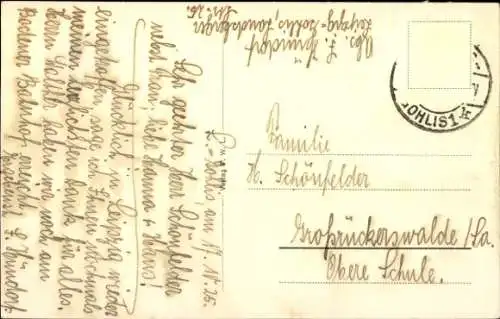 Abs. L. Zwindorf
Leipzig-Gohlis, Landsberger
Str. 26.
L.-Gohlis, am 17. 11. 25.
Sehr geehrter Herr Schönfelder
nebst Frau, liebe Hanna u. Hans!
Glücklich in Leipzig wieder
eingetroffen, sage ich Ihnen nochmals
meinen herzlichsten Dank für alles.
Herrn Walther haben wir noch am
Bodener Bahnhof erreicht.
Ergebenst L.
OHLIS 1
Familie
H. Schönfelder
Großrückerswalde/Sa.
Obere Schule.